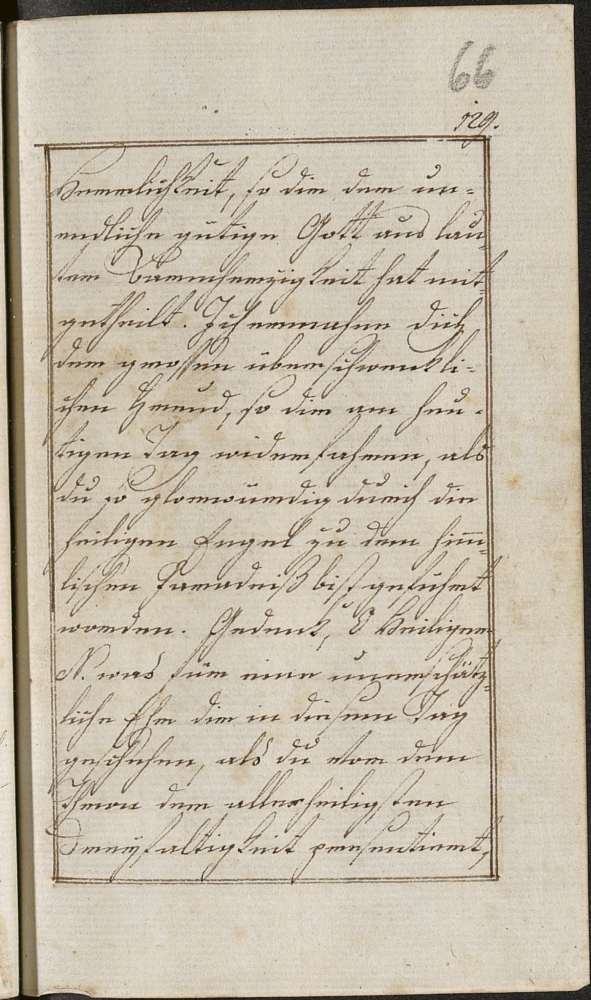 66
129.
Herrlichkeit, so dir der un-
endliche gütige Gott aus lau-
ter Barmherzigkeit hat mit-
getheilt. Ich ermahne dich
der grossen überschwenkli-
chen Freud, so dir am heu-
tigen Tag widerfahren, als
du so glorwürdig durch die
heiligen Engel zu dem himm-
lischen Paradeiß bist geführt
worden. Gedenk, O Heiliger
N. was für eine unerschätz-
liche Ehr dir in diesem Tag
geschehen, als du vor dem
Thron der allerheiligsten
Dreyfaltigkeit presentiert,